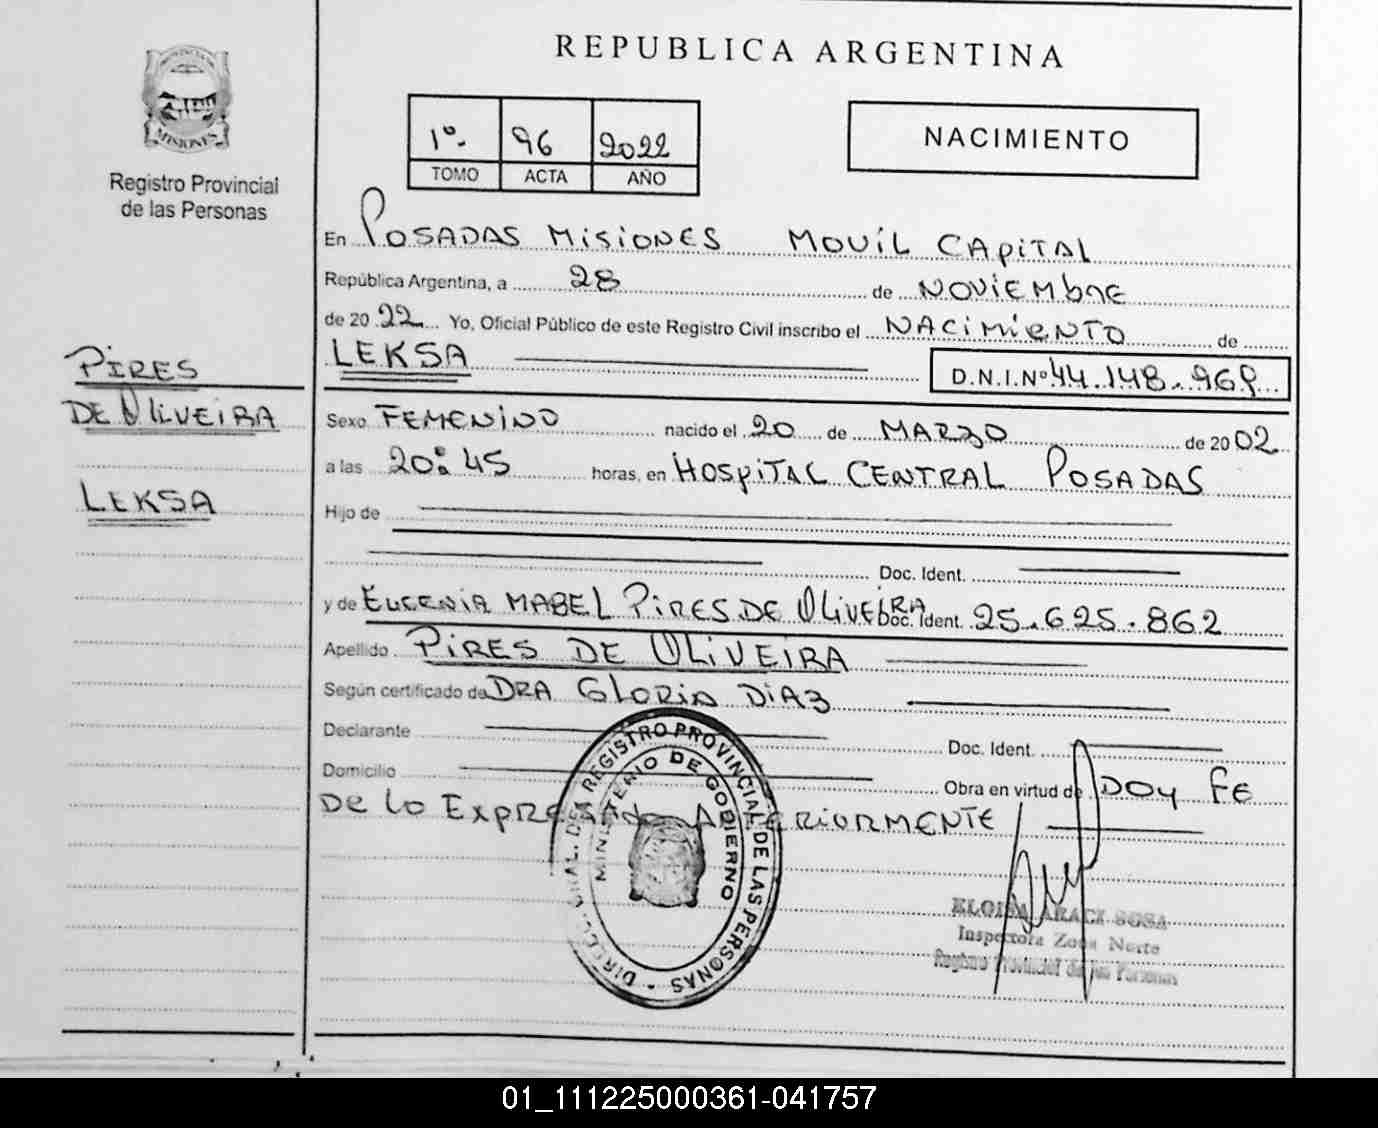 REPUBLICA ARGENTINA
PROVINCIA DE
MISIONES
Registro Provincial
de las Personas
1º. 96 2022
TOMO ACTA AÑO
NACIMIENTO
En POSADAS MISIONES MOVIL CAPITAL
República Argentina, a 28 de NOVIEMBRE
de 2022 Yo, Oficial Público de este Registro Civil inscribo el NACIMIENTO de
LEKSA D.N.I.Nº 44.148.969
PIRES
DE OLIVEIRA
LEKSA
Sexo FEMENINO nacido el 20 de MARZO de 2002
a las 20:45 horas, en HOSPITAL CENTRAL POSADAS
Hijo de
Doc. Ident.
y de EUGENIA MABEL PIRES DE OLIVEIRA Doc. Ident. 25.625.862
Apellido PIRES DE OLIVEIRA
Según certificado de DRA GLORIA DIAZ
Declarante Doc. Ident.
Domicilio Obra en virtud de DOY FE
DE LO EXPRESADO ANTERIORMENTE
DIREC. GRAL. DEL REGISTRO PROVINCIAL DE LAS PERSONAS
MINISTERIO DE GOBIERNO
ELOISA ARACI SOSA
Inspectora Zona Norte
Registro Provincial de las Personas
01_111225000361-041757